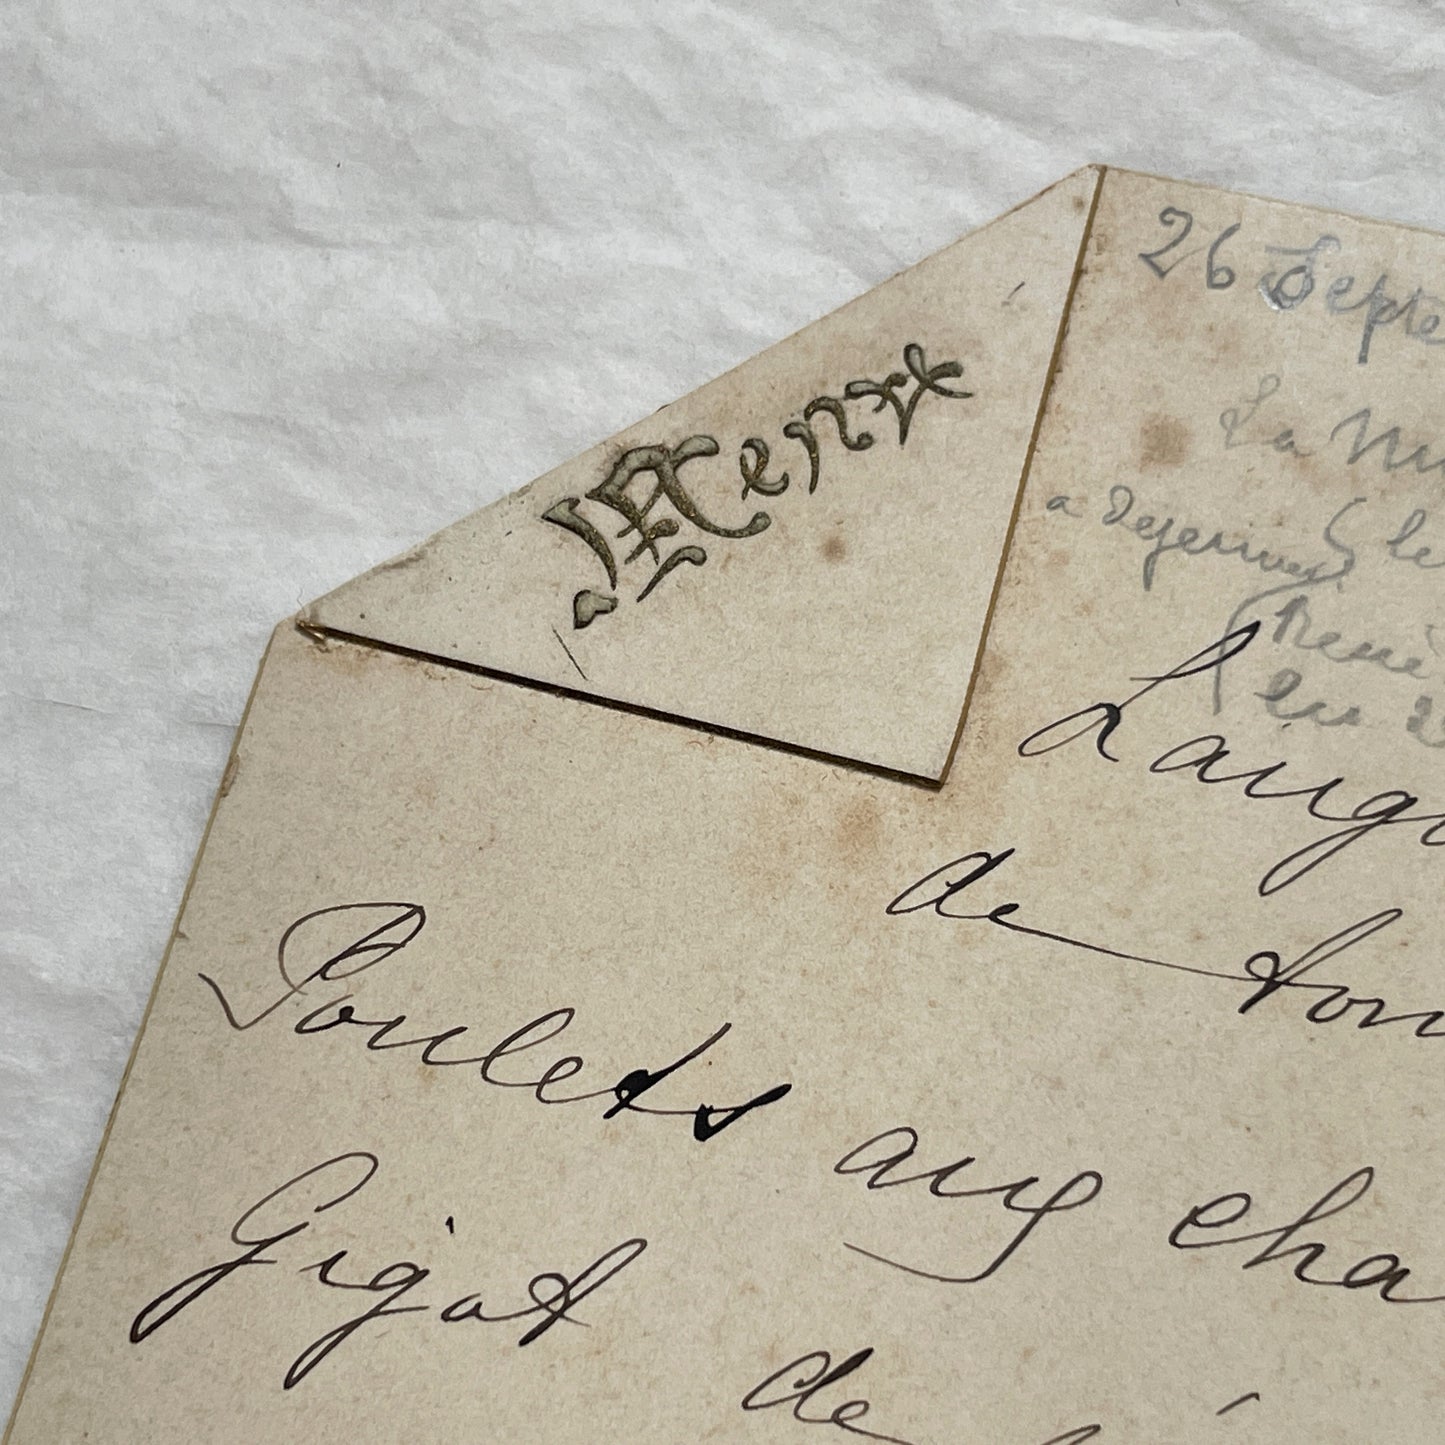 Menu
26 Septe
La Mu
a dejeuner le
René
Lango
de tom
Poulets aux cha
Gigot
de